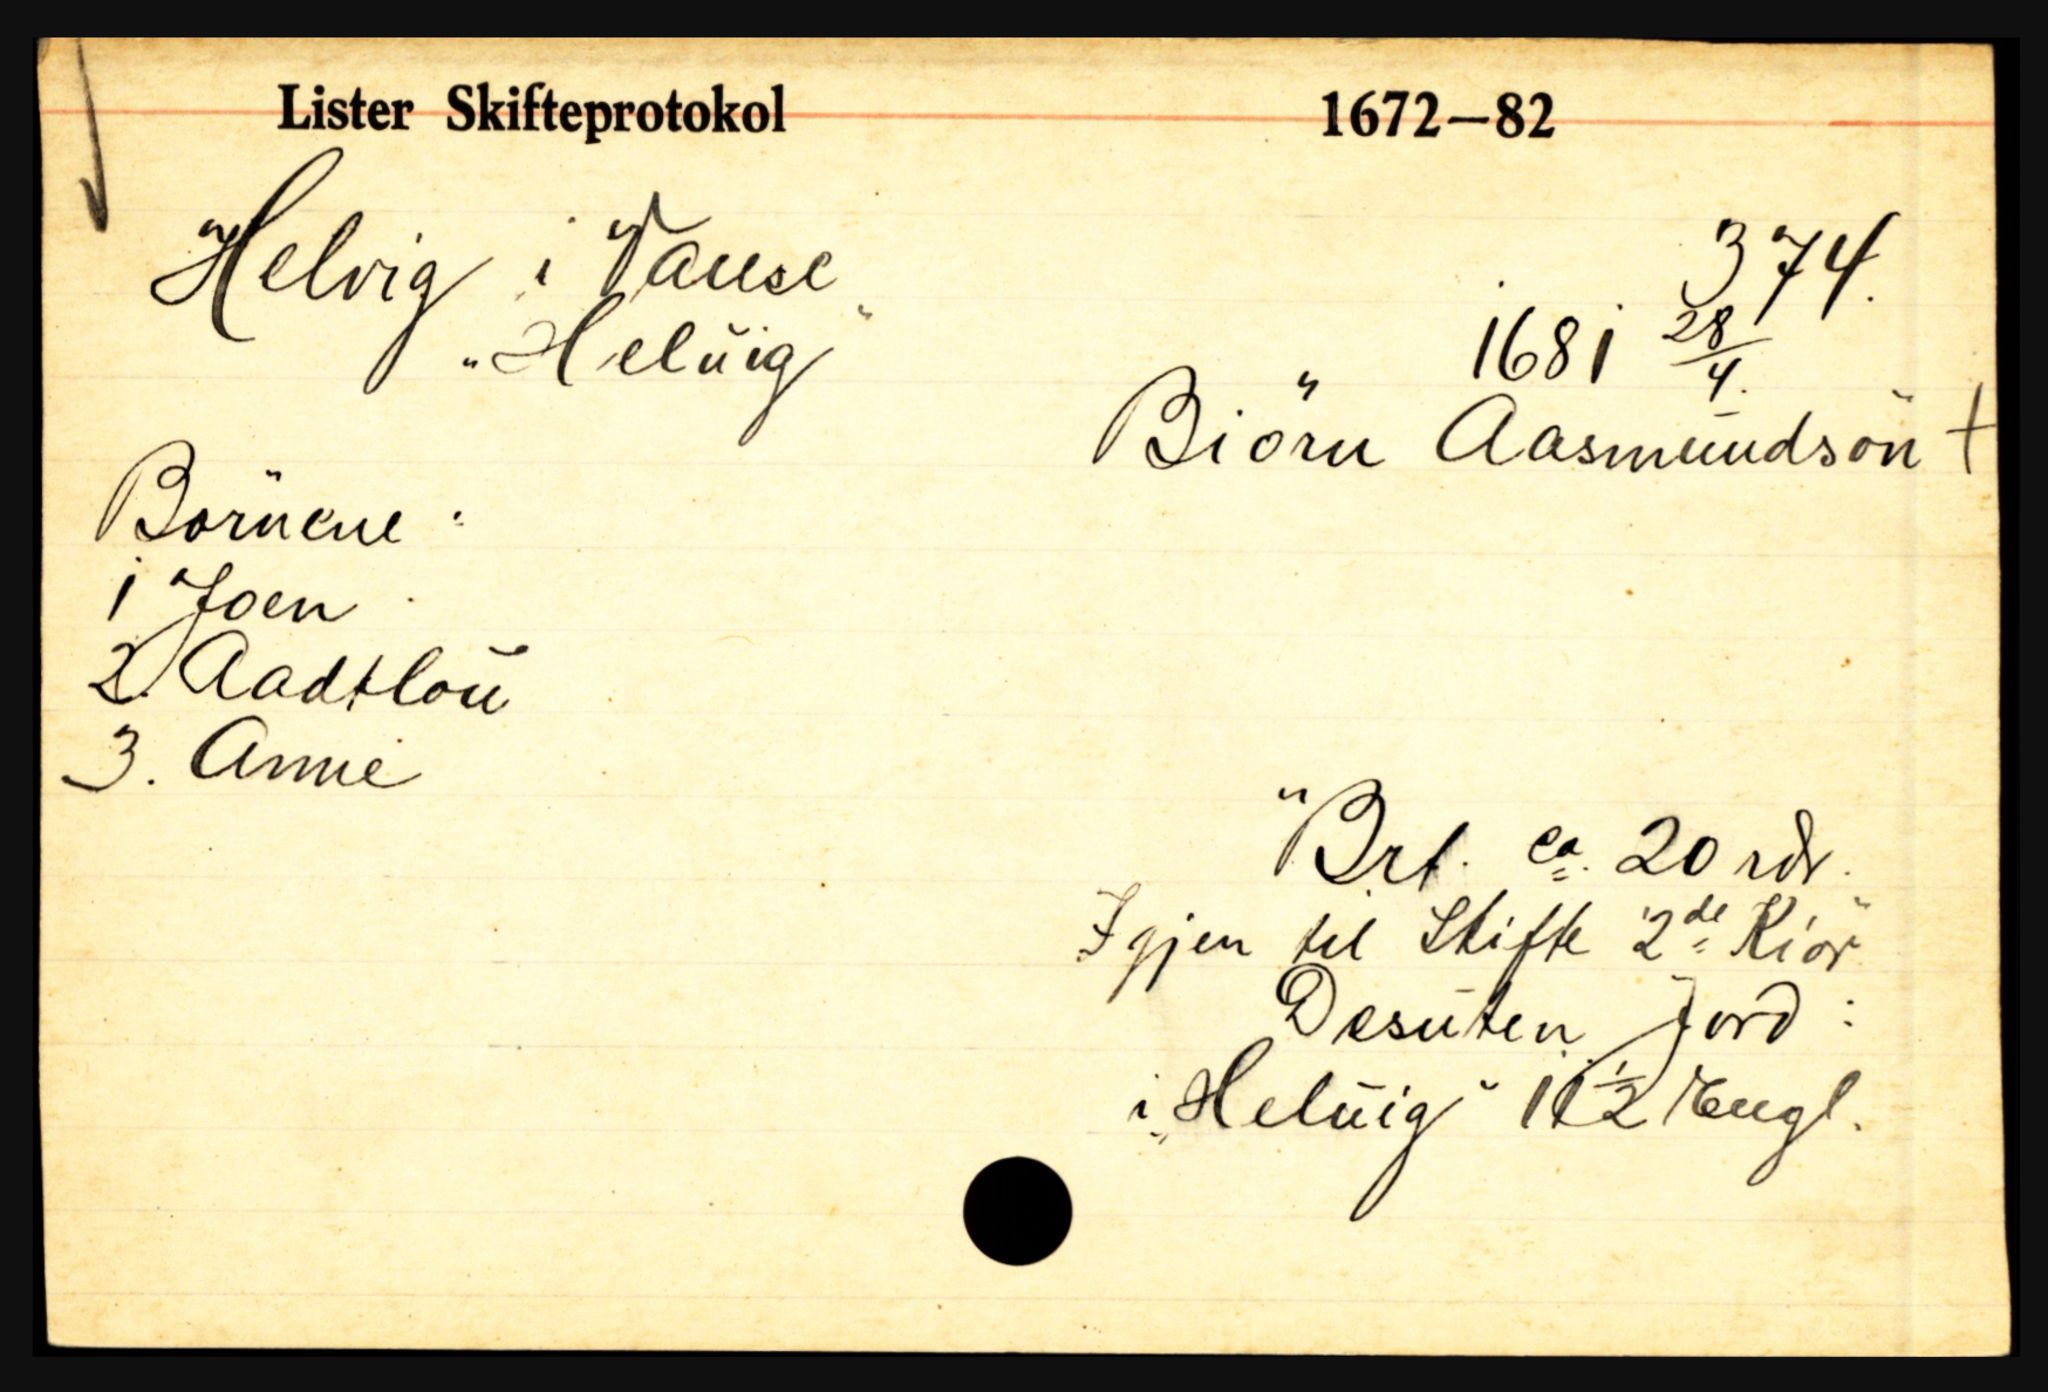 Lister Skifteprotokol 1672—82
Helvig i Vanse 374.
„Helŭig" 1681 28/4.
Biörn Aasmŭndsön +
Börnene:
1 Joen
2. Aadtloŭ
3. Anne
Brt. ca. 20 rdr.
Igjen til Skifte 2de Kiör
Desŭten Jord:
i „Helŭig" 1 1/2 Engl.